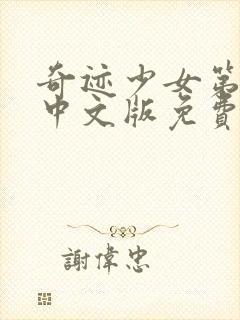 奇迹少女第
中文版免费
謝偉忠